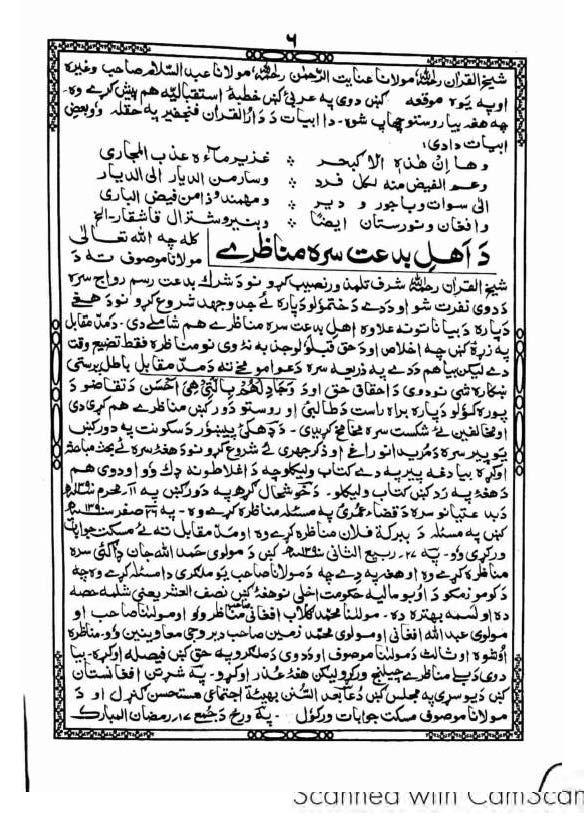 ۶
شیخ القرآن رحمه الله، مولانا عنایت الرحمٰن رحمه الله، مولانا عبد السلام صاحب وغیره
اوپه یوه موقعه کښ دوی په عربئ کښ خطبهٔ استقبالیه هم پیش کړے وه۔
چه هغه بیا روستو چاپ شوه۔ دا ابیات د دار القرآن فنجفیر په حقله وو بعض
ابیات دادی؛
وها ان هذه الا کبحر ؞ غزیر ماءه عذب المجاری
وعم الفیض منه لکل فرد ؞ وسار من الدیار الی الدیار
الی سوات وباجور و دیر ؞ ومهمند وذا من فیض الباری
وافغان ونورستان ایضًا ؞ وبنیر وشترال قاشقار۔الخ
د اهلِ بدعت سره مناظرے
کله چه الله تعالی
مولانا موصوف ته د
شیخ القرآن رحمه الله شرف تلمذ ورنصیب کړو نو د شرك بدعت رسم رواج سره
د دوی نفرت شو او د دے د ختمولو دپاره ئے جد وجهد شروع کړو نو د هغے
دپاره د بیاناتونه علاوه اهل بدعت سره مناظرے هم شاملے دی۔ د مد مقابل
په زړۀ کښ چه اخلاص او د حق قبلولو جذبه نۀ وی نو مناظره فقط تضیع وقت
دے لیکن بیا هم د دے په ذریعه سره د عوامو مخے ته د مد مقابل باطل پرستی
ښکاره شی نو دوی د احقاق حق او د وَجَادِلْهُمْ بِالَّتِیْ هِیَ اَحْسَن د تقاضو د
پوره کولو دپاره براه راست د طالبئ او روستو دور کښ مناظرے هم کړی دی
او مخالفین ئے شکست سره مخامخ کړیدی۔ د ډهکئ پیښور د سکونت په دور کښ
یو پیر سره د مُریدانو راغے او ذکر جهری ئے شروع کړو نو د هغۀ سره ئے بحث مباحثه
اوکړه بیا دغه پیر په دے کتاب ولیکلو چه د اغلاطو نه ډك وو او دوی هم
د هغۀ په رد کښ کتاب ولیکلو۔ د خوشمال ګړهـ په دور کښ په ۱۱۔ محرم ۱۳۹۰هـ
د بدعتیانو سره د قضاء عمرئ په مسئله مناظره کړے وه۔ په صفر ۱۳۹۰هـ
کښ په مسئله د ببرکة فلان مناظره کړے وه او مد مقابل ته ئے مسکت جوابات
ورکړی وو۔ په ۲۷۔ ربیع الثانی ۱۳۹۰هـ کښ د مولوی حمد الله جان ډاګئی سره
مناظره کړے وه او هغه په دے چه د مولانا صاحب یو ملګری دا مسئله کړے وه چه
د کومو زمکو د اوبو مالیه حکومت اخلی نو هغۀ کښ نصف العشر یعنی شلمه حصه
ده او لسمه بهتره ده۔ مولانا محمد ګلاب افغانی مناظر وو او مولانا صاحب او
مولوی عبد الله افغانی او مولوی محمد زمین صاحب دیر وجی معاونین وو۔ مناظره
اوشوه او ثالث د مولانا موصوف او د دوی د ملګرو په حق کښ فیصله اوکړه۔ بیا
دوی د بلے مناظرے چیلنج ورکړو لیکن هغۀ عُذر اوکړو۔ په شرتن افغانستان
کښ د یو سړی په مجلس کښ دُعا بعد السُنن بهیئة اجتماعی مستحسن ګنړل او د
مولانا موصوف مسکت جوابات ورکول۔ په ورځ د جمعے ۱۷۔ رمضان المبارك
Scanned with CamScan